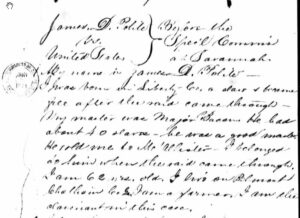 James D. Polite } Before the
vs. Special Commis
United States } at Savannah
My name is James D. Polite —
I was born in Liberty Co. a slave & became
free after the raid came through —
My master was Major Bacon He had
about 40 slaves — he was a good master
He sold me to Mr I belonged
to him when the raid came through,
I am 62 yrs. old. I live on
Chatham Co. I am a farmer, I am the
claimant in this case.